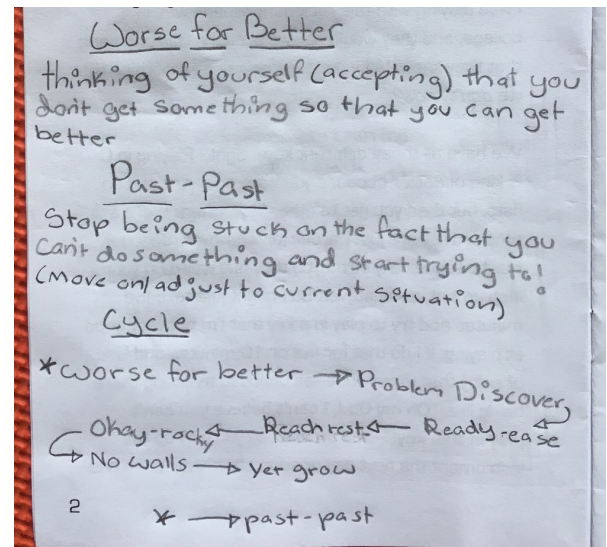 Worse for Better
thinking of yourself (accepting) that you
don't get something so that you can get
better
Past-Past
Stop being stuck on the fact that you
Can't do something and start trying to!
(Move on/adjust to current situation)
Cycle
*worse for better → Problem Discover
Okay-rocky ← Reach rest ← Ready-ease
→ No walls → Yet grow
2
* → past-past